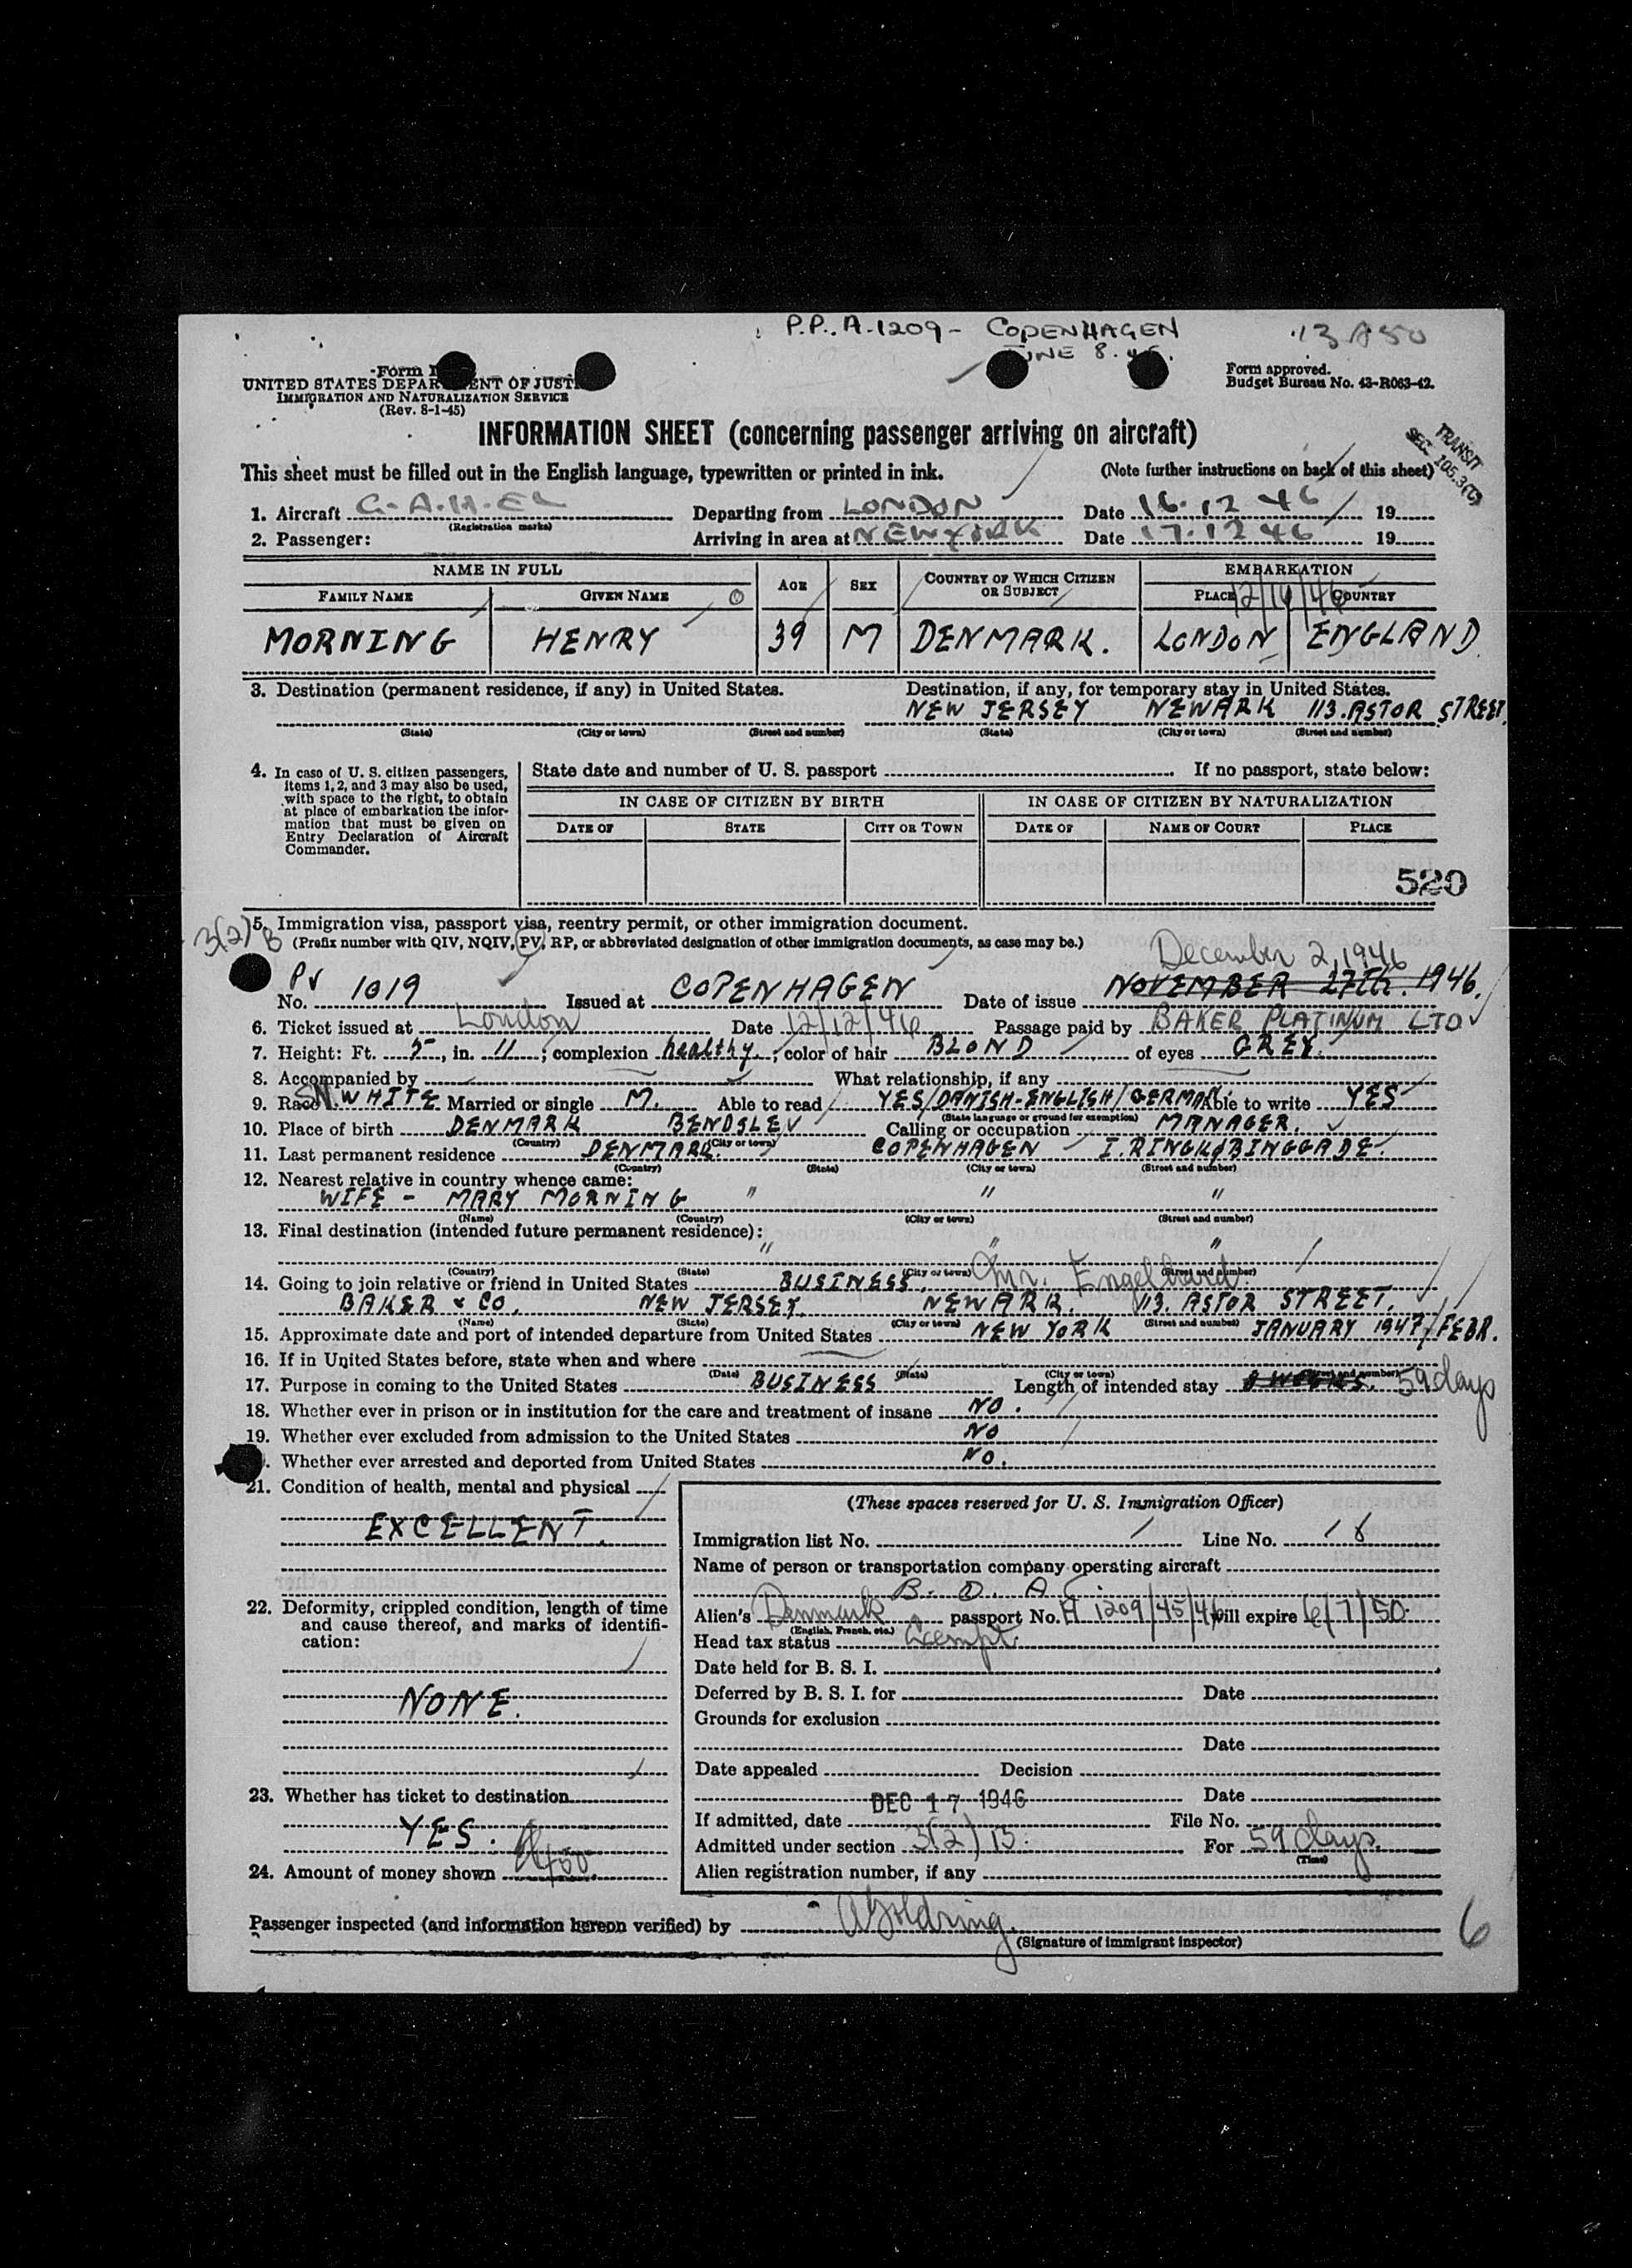 P.P. A-1209 - COPENHAGEN
JUNE 8.
Form
UNITED STATES DEPARTMENT OF JUSTICE
IMMIGRATION AND NATURALIZATION SERVICE
(Rev. 8-1-45)
Form approved.
Budget Bureau No. 43-R063-42.
INFORMATION SHEET (concerning passenger arriving on aircraft)
TRANSIT
SEC. 105.3(C)
This sheet must be filled out in the English language, typewritten or printed in ink. (Note further instructions on back of this sheet)
1. Aircraft G-A.H.EL Departing from LONDON Date 16.12 46 19
(Registration marks)
2. Passenger: Arriving in area at NEW YORK Date 17.12 46 19
NAME IN FULL AGE SEX COUNTRY OF WHICH CITIZEN OR SUBJECT EMBARKATION
FAMILY NAME GIVEN NAME PLACE 12/16/46 COUNTRY
MORNING HENRY 39 M DENMARK. LONDON ENGLAND
3. Destination (permanent residence, if any) in United States. Destination, if any, for temporary stay in United States.
NEW JERSEY NEWARK 113. ASTOR STREET.
(State) (City or town) (Street and number) (State) (City or town) (Street and number)
4. In case of U. S. citizen passengers, items 1, 2, and 3 may also be used, with space to the right, to obtain at place of embarkation the information that must be given on Entry Declaration of Aircraft Commander.
State date and number of U. S. passport If no passport, state below:
IN CASE OF CITIZEN BY BIRTH IN CASE OF CITIZEN BY NATURALIZATION
DATE OF STATE CITY OR TOWN DATE OF NAME OF COURT PLACE
520
3(2)B
5. Immigration visa, passport visa, reentry permit, or other immigration document.
(Prefix number with QIV, NQIV, PV, RP, or abbreviated designation of other immigration documents, as case may be.)
December 2, 1946
No. PV 1019 Issued at COPENHAGEN Date of issue NOVEMBER 27th. 1946.
6. Ticket issued at London Date 12/12/46 Passage paid by BAKER PLATINUM LTD
7. Height: Ft. 5, in. 11; complexion healthy.; color of hair BLOND of eyes GREY.
8. Accompanied by What relationship, if any
9. Race WHITE Married or single M. Able to read YES/DANISH-ENGLISH/GERMAN. Able to write YES
(State language or ground for exemption)
10. Place of birth DENMARK BENDSLEV Calling or occupation MANAGER.
(Country) (City or town)
11. Last permanent residence DENMARK. COPENHAGEN I. RINGKØBINGGADE.
(Country) (State) (City or town) (Street and number)
12. Nearest relative in country whence came:
WIFE - MARY MORNING " " "
(Name) (Country) (City or town) (Street and number)
13. Final destination (intended future permanent residence):
" " "
(Country) (State) (City or town) (Street and number)
14. Going to join relative or friend in United States BUSINESS. Engelhard.
BAKER & CO. NEW JERSEY. NEWARK. 113. ASTOR STREET.
(Name) (State) (City or town) (Street and number)
15. Approximate date and port of intended departure from United States NEW YORK JANUARY 1947/FEBR.
16. If in United States before, state when and where
(Date) (State) (City or town) (Street and number)
17. Purpose in coming to the United States BUSINESS Length of intended stay 59 days
18. Whether ever in prison or in institution for the care and treatment of insane NO.
19. Whether ever excluded from admission to the United States NO
Whether ever arrested and deported from United States NO.
21. Condition of health, mental and physical
EXCELLENT.
22. Deformity, crippled condition, length of time and cause thereof, and marks of identification:
NONE.
23. Whether has ticket to destination
YES.
24. Amount of money shown
(These spaces reserved for U. S. Immigration Officer)
Immigration list No. 1 Line No. 18
Name of person or transportation company operating aircraft
B. O. A. C.
Alien's Denmark passport No. A 1209/45/46 will expire 6/7/50
(English, French, etc.)
Head tax status Exempt
Date held for B. S. I.
Deferred by B. S. I. for Date
Grounds for exclusion
Date
Date appealed Decision
DEC 17 1946 Date
If admitted, date File No.
Admitted under section 3(2)B. For 59 days.
(Time)
Alien registration number, if any
Passenger inspected (and information hereon verified) by A Goldring.
(Signature of immigrant inspector)
6